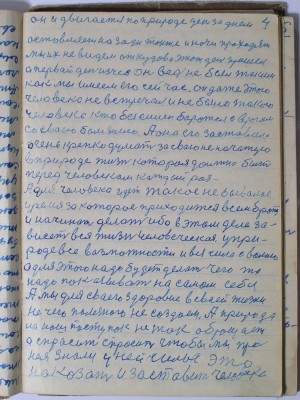 он и двигается по природе день за днем 4
оставляет на зади тоже и ночи проходят
мы их не видем откудова этот день пришел
а первый день изчез он ведь не был таким
как мы имеем его сейчас, он даже этого
человека не встречал и не было такого
человека кто бы с ним боролся с врагом
со своей болезнию. А она его заставила
очень крепко думать за свою не начатую
в природе жизнь которая должна быть
перед человеком
А для человека идет такое не бывалое
время за которое приходится всем браться
и начинать делать ибо в этом деле за-
висет вся жизнь человеческая, у при-
роде все возможности и все силы с волею
а для этого надо будет делать чего то
надо показывать на самом себе
А мы для своего здоровие в своей жизни
не чего полезного не создаем, А природа
на наш поступок не так оброжает
а спросит спросит чтобы мы про
нея знали у ней силы это
наказать и заставить человека